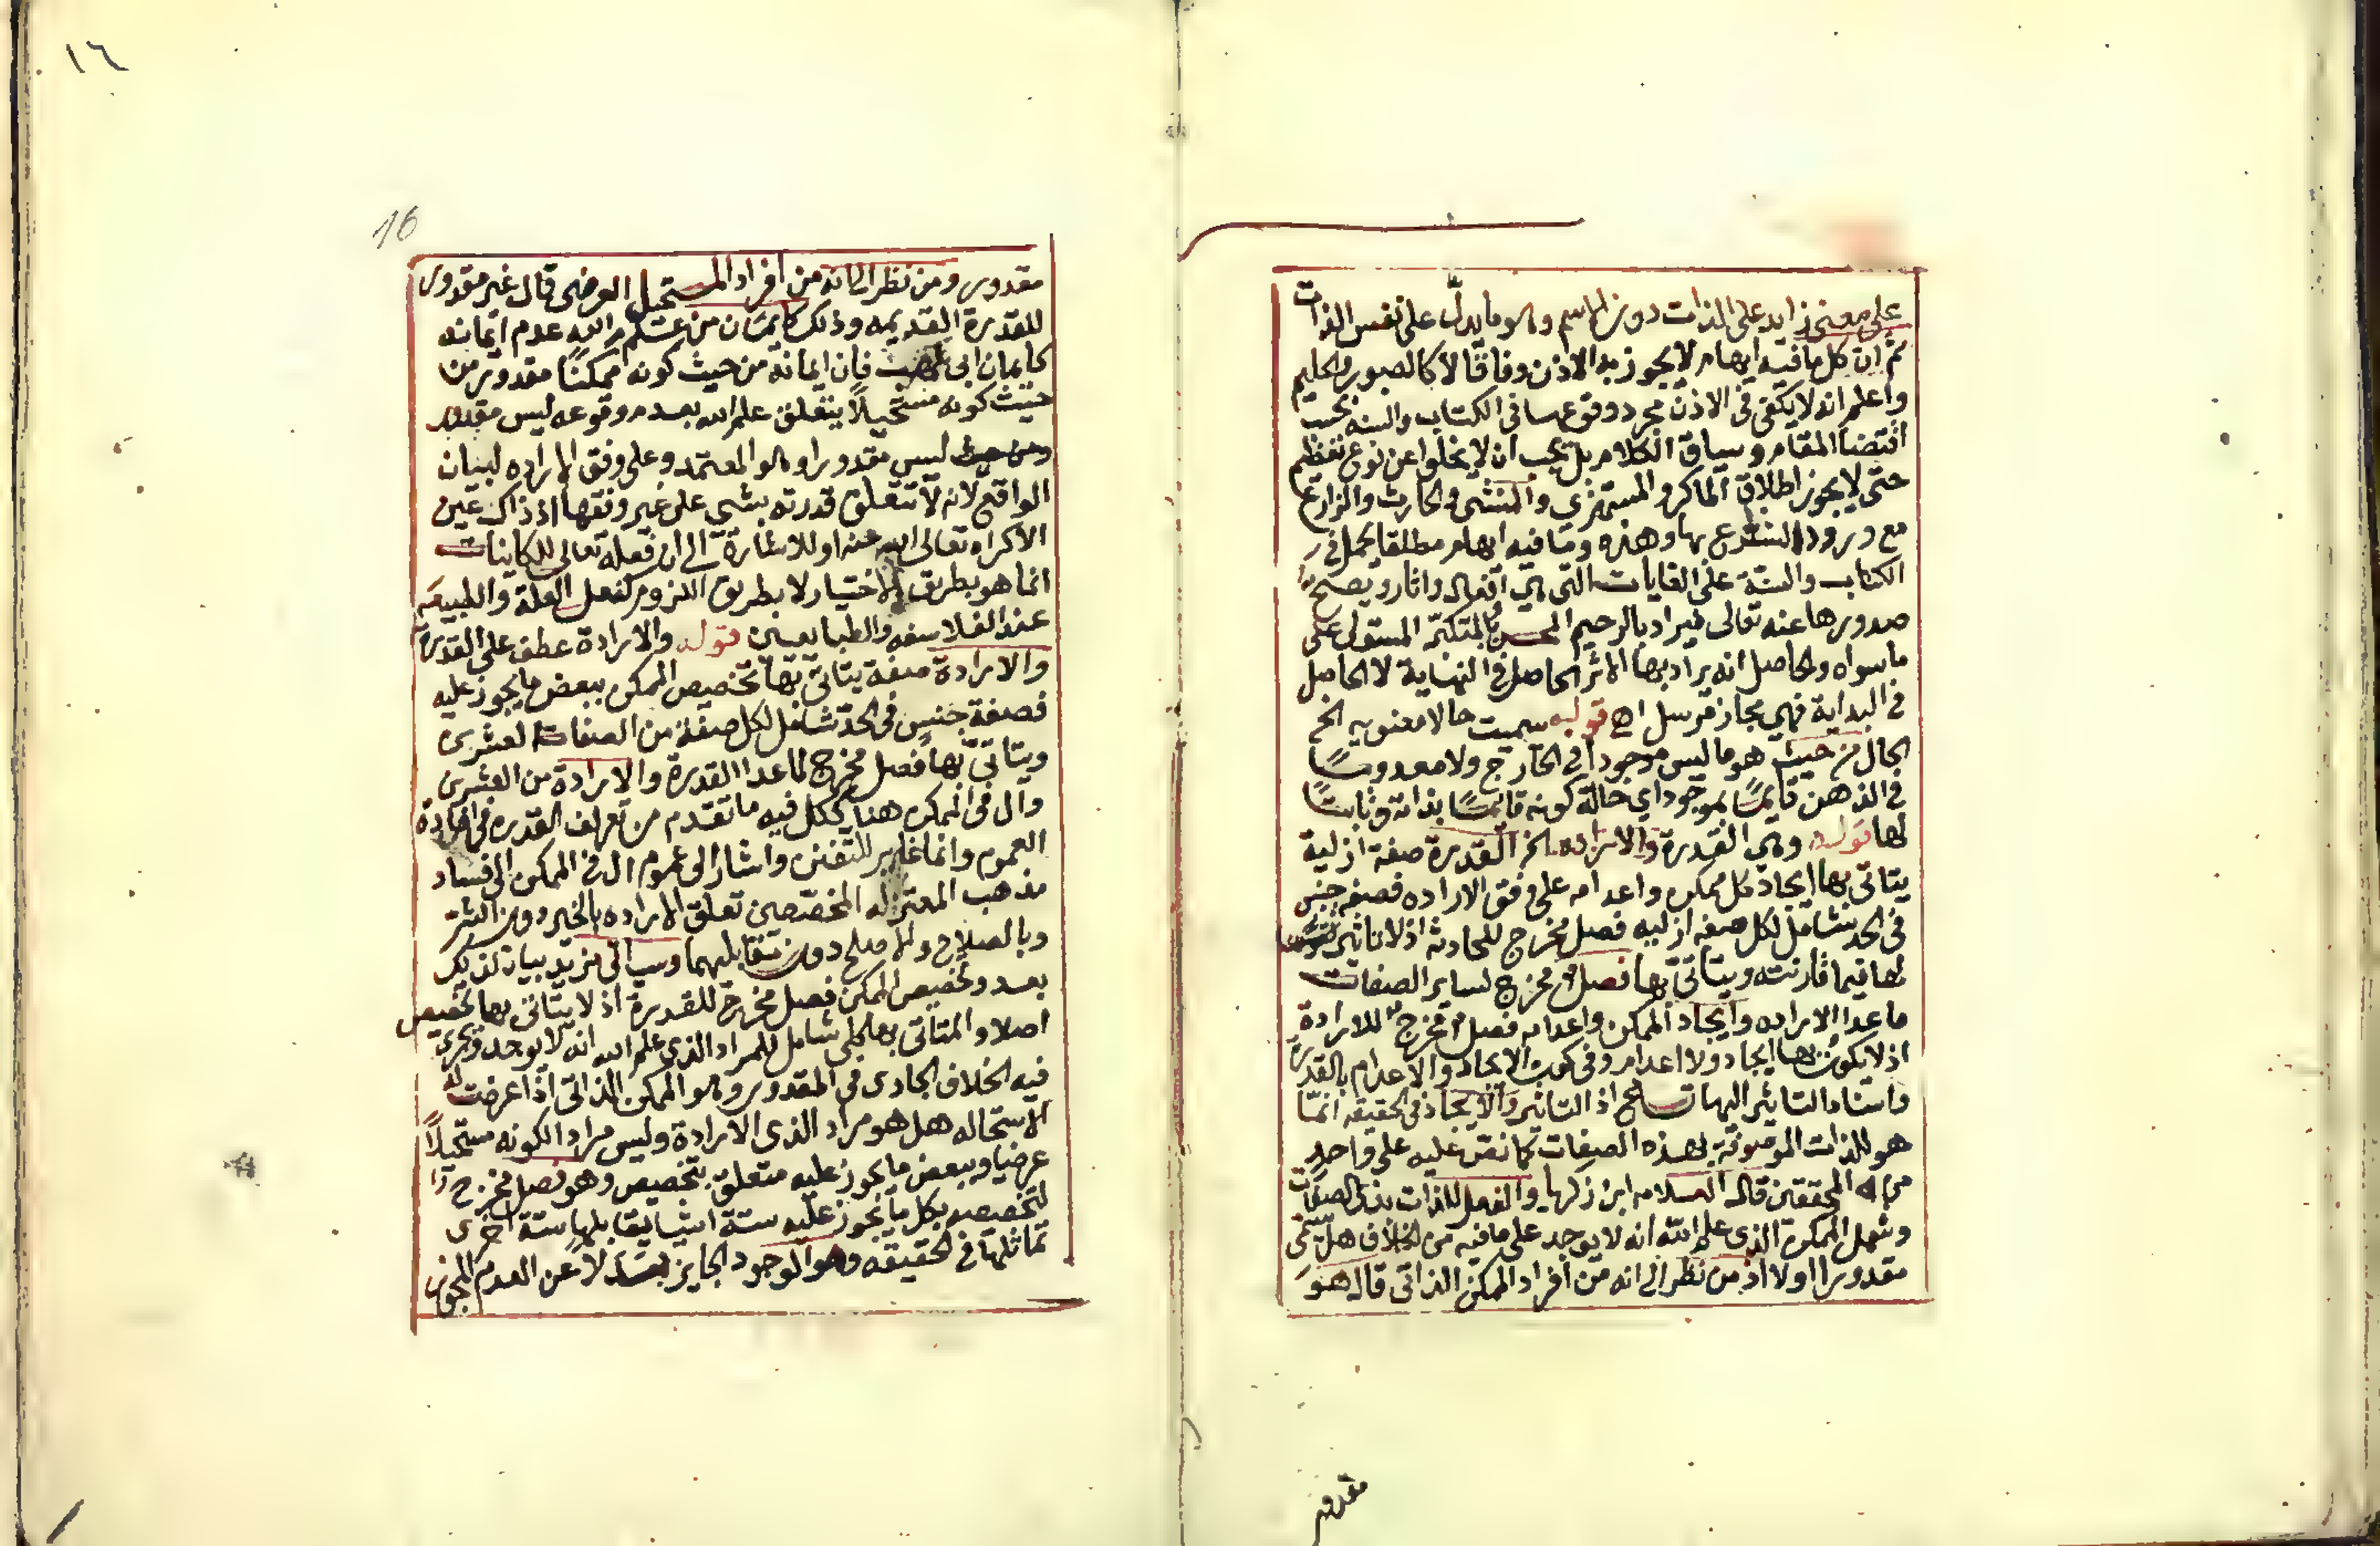 على معنى زايد على الذات دون الاسم وهو ما يدل على نفس الذات
ثم ان كل ما فيه ايهام لا يجوز بدا الاذن وفاقا لا كالصبور والحليم
واعلم انه لا يكفى فى الاذن مجرد وقوعها فى الكتاب والسنه بحسب
اقتضا المقام وسياق الكلام بل يجب ان لا يخلوا عن نوع تعظيم
حتى لا يجوز اطلاق الماكر والمستهزي والمنشى والحارث والزارع
مع ورود الشرع بها وهذه وما فيه ايهام مطلقا يحمل فى
الكتاب والسنة على الغايات التى هي افعال واثار ويصح
صدورها عنه تعالى فيراد بالرحيم المحسن بالمتكبر المستولى على
ما سواه والحاصل انه يراد بها الاثر الحاصل فى النهاية لا الحاصل
فى البداية فهي مجاز مرسل اه قوله سميت حالا معنويه الخ
الحال من حيث هو ما ليس موجودا فى الخارج ولا معدوما
فى الذهن قايما بموجود اي حالة كونه قايما بذاته وثابتا
لها قوله وهي القدرة والاراده الخ القدرة صفة ازلية
يتاتى بها ايجاد كل ممكن واعدامه على وفق الاراده فصفه جنس
فى الحد شامل لكل صفه ازليه فصل مخرج للحادثه اذ لا تاثير
لها فيما قارنته ويتاتى بها فصل مخرج لساير الصفات
ما عدا الاراده وايجاد الممكن واعدامه فصل مخرج للارادة
اذ لا يكون بها ايجاد ولا اعدام وفى كون الايجاد والاعدام بالقدرة
واسناد التاثير اليها تسامح اذ التاثير والايجاد فى الحقيقه انما
هو للذات الموصوفة بهذه الصفات كما نص عليه على واحد
من المحققين قال العلامه ابن زكريا والفعل للذات بذى الصفات
وشمل الممكن الذى علم الله انه لا يوجد على ما فيه من الخلاف هل يسمى
مقدورا اولا اذ من نظر الى انه من افراد الممكن الذاتى قال هو
مقدور
16
١٦
مقدور ومن نظر الى انه من افراد المستحيل العرضى قال غير مقدور
للقدرة القديمه وذلك كايمان من علم الله عدم ايمانه
كايمان ابى لهب فان ايمانه من حيث كونه ممكنا مقدور من
حيث كونه مستحيلا يتعلق علم الله بعدم وقوعه ليس مقدور
ومن حيث ليس مقدورا وهو المعتمد وعلى وفق الاراده لبيان
الواقع لانه لا تتعلق قدرته بشى على غير وفقها اذ ذاك عين
الاكراه تعالى الله عنه او للاشارة الى ان فعله تعالى للكاينات
انما هو بطريق الاختيار لا بطريق اللزوم كفعل العلة والطبيعه
عند الفلاسفه والطبايعيين قوله والارادة عطف على القدرة
والارادة صفة يتاتى بها تخصيص الممكن ببعض ما يجوز عليه
فصفة جنس فى الحد شامل لكل صفة من الصفات العشرين
ويتاتى بها فصل مخرج لما عدا القدرة والارادة من العشرين
وال فى الممكن هنا ككل فيه ما تقدم من تعريف القدره فى افادة
العموم وانما غاير للتفنن واشار الى عموم ال فى الممكن الى فساد
مذهب المعتزله المخصصين تعلق الاراده بالخير دون الشر
وبالصلاح والاصلح دون متقابليهما وسياتى مزيد بيان لذلك
بعد وتخصيص الممكن فصل مخرج للقدرة اذ لا يتاتى بها تخصيص
اصلا والمتاتى بها شامل للمراد الذى علم الله انه لا يوجد ويجرى
فيه الخلاف الجارى فى المقدور وهو الممكن الذاتى اذا عرضت له
الاستحاله هل هو مراد الذى الارادة وليس مرادا لكونه مستحيلا
عرضيا وببعض ما يجوز عليه متعلق بتخصيص وهو فصل مخرج
لتخصيصه بكل ما يجوز عليه ستة اشيا يقابلها ستة اخرى
تماثلها فى الحقيقه وهو الوجود الجايز بدلا عن العدم المجوز